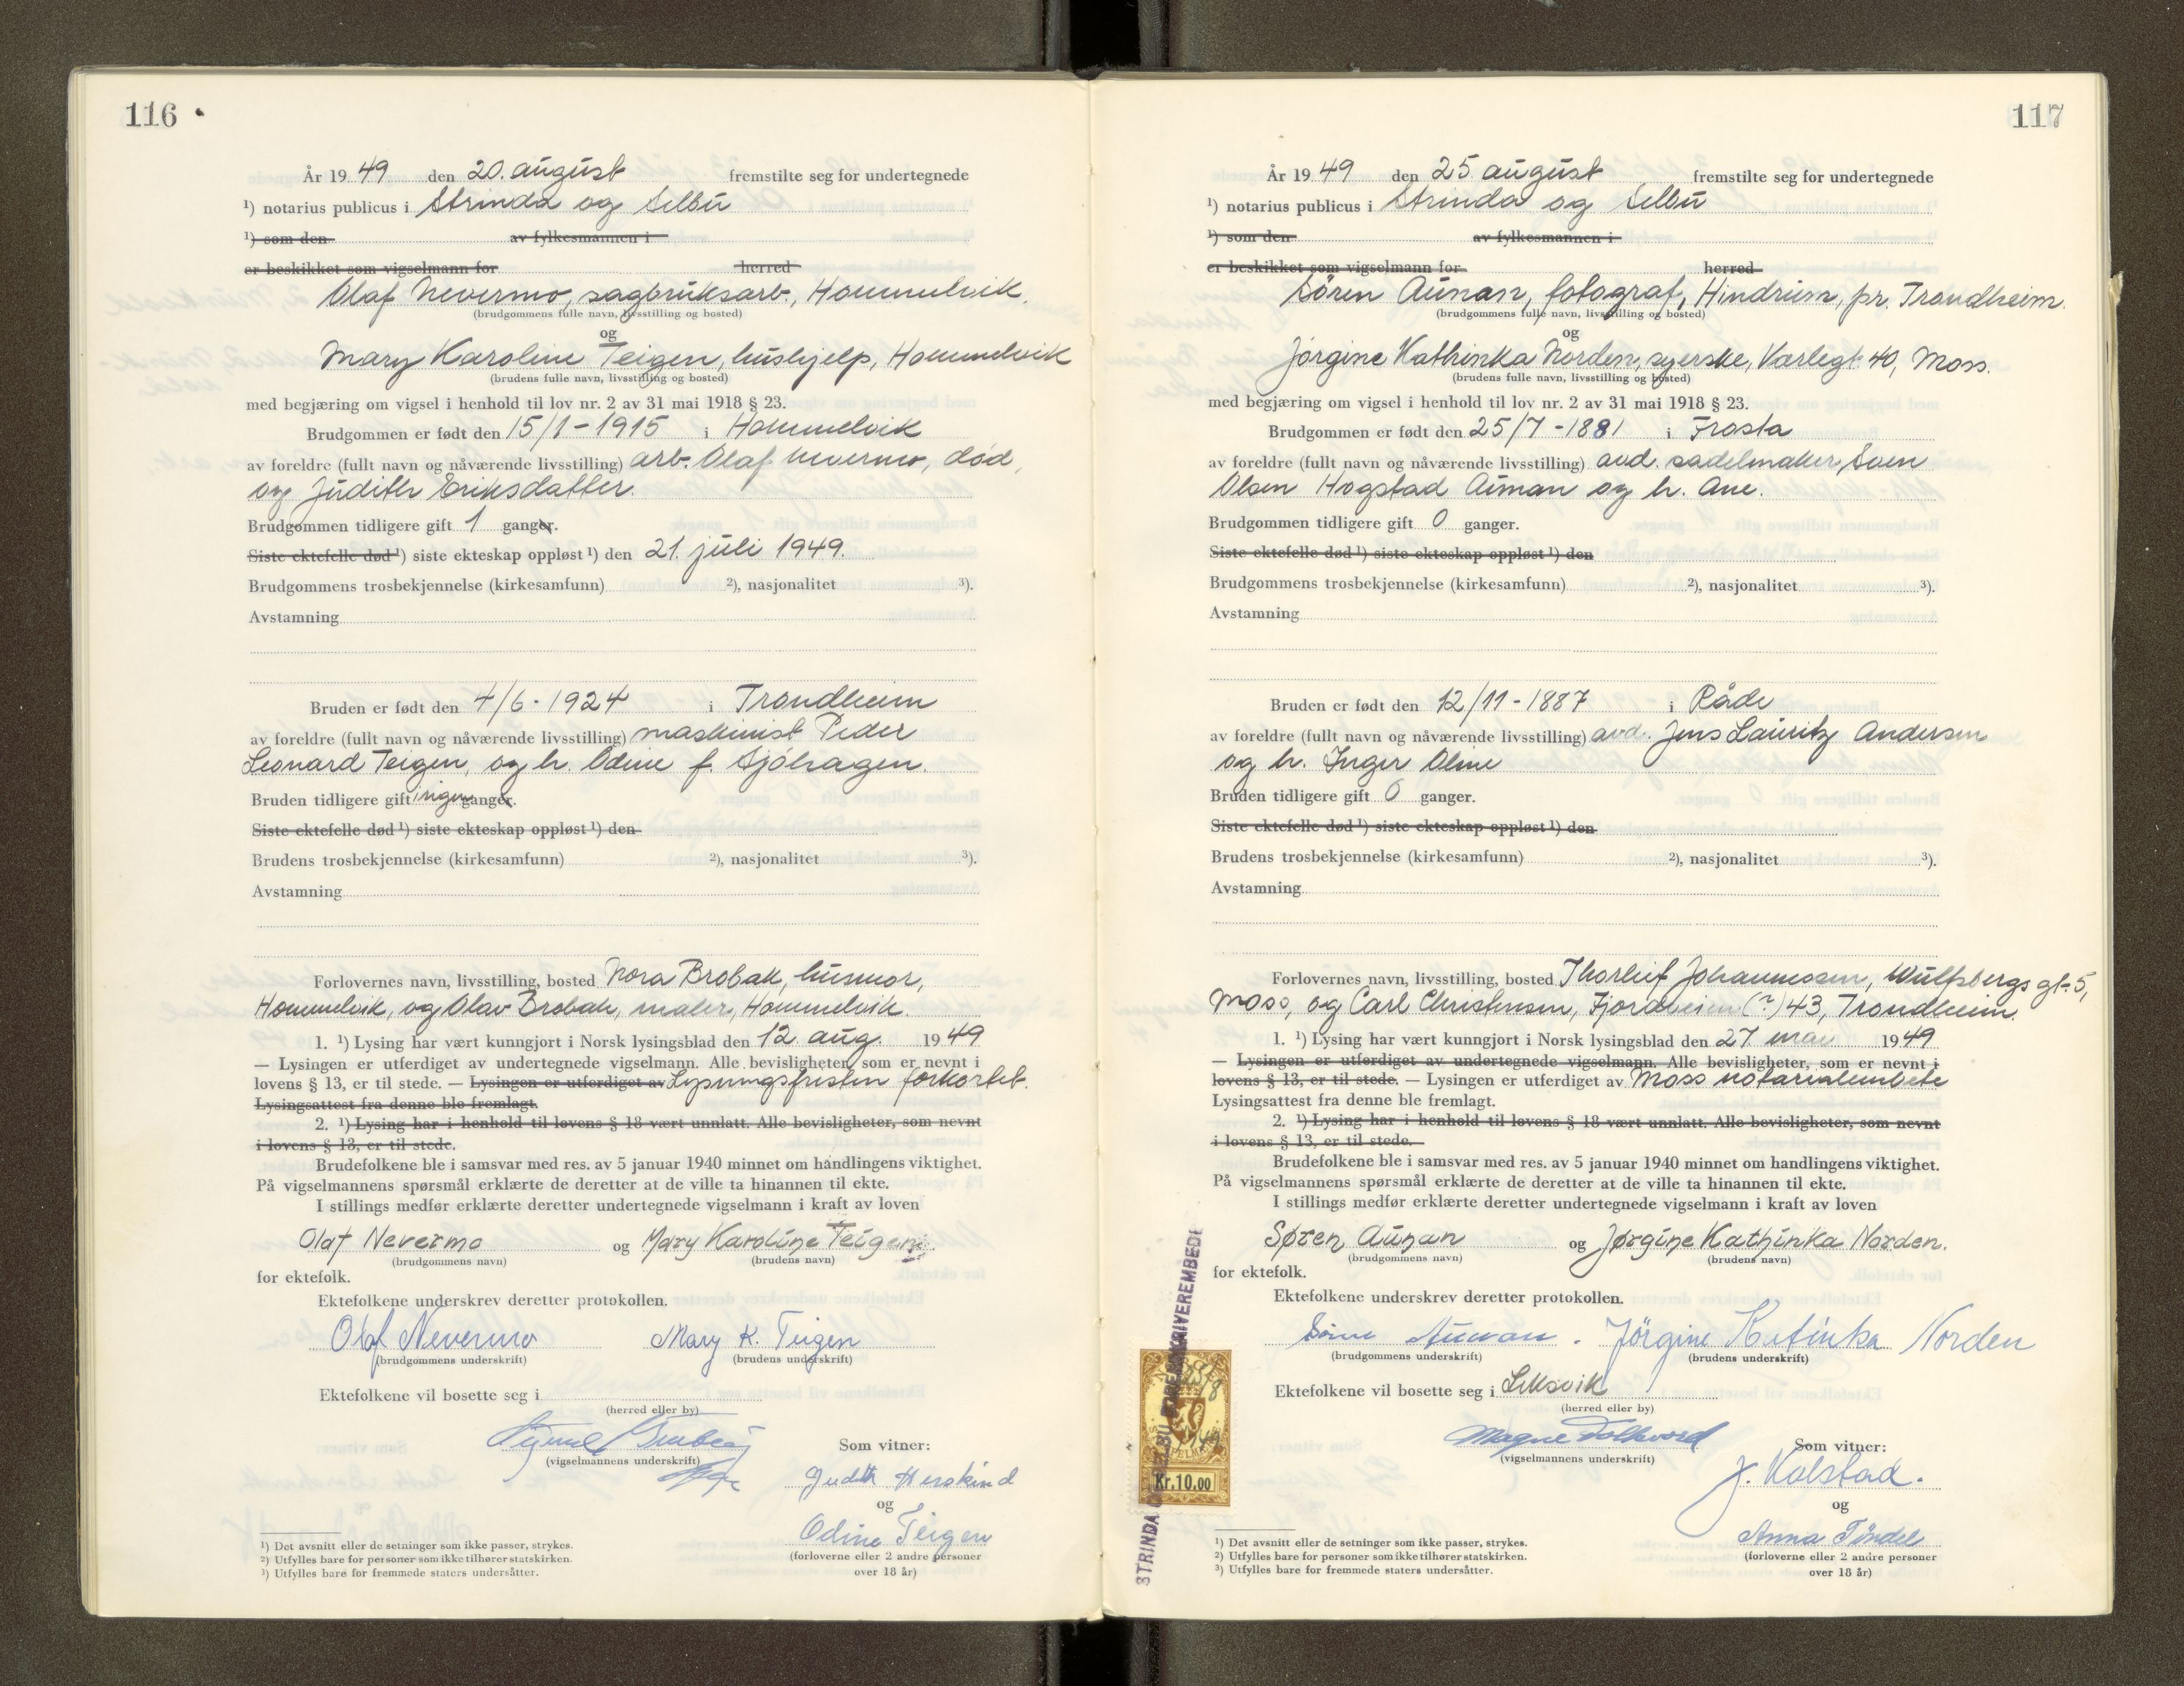 116
År 19 49 den 20. august fremstilte seg for undertegnede
¹) notarius publicus i Strinda og Selbu
¹) som den av fylkesmannen i
er beskikket som vigselmann for herred
Olaf Nevermo, sagbruksarb., Hommelvik.
(brudgommens fulle navn, livsstilling og bosted)
og
Mary Karoline Teigen, hushjelp, Hommelvik
(brudens fulle navn, livsstilling og bosted)
med begjæring om vigsel i henhold til lov nr. 2 av 31 mai 1918 § 23.
Brudgommen er født den 15/1-1915 i Hommelvik
av foreldre (fullt navn og nåværende livsstilling) arb. Olaf Nevermo, død,
og Judith Eriksdatter.
Brudgommen tidligere gift 1 ganger.
Siste ektefelle død ¹) siste ekteskap oppløst ¹) den 21. juli 1949.
Brudgommens trosbekjennelse (kirkesamfunn) ²), nasjonalitet ³).
Avstamning
Bruden er født den 4/6-1924 i Trondheim
av foreldre (fullt navn og nåværende livsstilling) maskinist Peder
Leonard Teigen, og h. Odine f. Sjöhagen.
Bruden tidligere gift ingen ganger.
Siste ektefelle død ¹) siste ekteskap oppløst ¹) den
Brudens trosbekjennelse (kirkesamfunn) ²), nasjonalitet ³).
Avstamning
Forlovernes navn, livsstilling, bosted Nora Brobak, husmor,
Hommelvik, og Olav Brobak, maler, Hommelvik.
1. ¹) Lysing har vært kunngjort i Norsk lysingsblad den 12. aug. 19 49
— Lysingen er utferdiget av undertegnede vigselmann. Alle bevisligheter, som er nevnt i
lovens § 13, er til stede. — Lysingen er utferdiget av Lysningsfristen forkortet.
Lysingsattest fra denne ble fremlagt.
2. ¹) Lysing har i henhold til lovens § 18 vært unnlatt. Alle bevisligheter, som nevnt
i lovens § 13, er til stede.
Brudefolkene ble i samsvar med res. av 5 januar 1940 minnet om handlingens viktighet.
På vigselmannens spørsmål erklærte de deretter at de ville ta hinannen til ekte.
I stillings medfør erklærte deretter undertegnede vigselmann i kraft av loven
Olaf Nevermo og Mary Karoline Teigen.
(brudgommens navn) (brudens navn)
for ektefolk.
Ektefolkene underskrev deretter protokollen.
Olaf Nevermo Mary K. Teigen
(brudgommens underskrift) (brudens underskrift)
Ektefolkene vil bosette seg i
(herred eller by)
Som vitner:
(vigselmannens underskrift)
Judith Herskind
og
Odine Teigen
(forloverne eller 2 andre personer
over 18 år)
¹) Det avsnitt eller de setninger som ikke passer, strykes.
²) Utfylles bare for personer som ikke tilhører statskirken.
³) Utfylles bare for fremmede staters undersåtter.
117
År 19 49 den 25. august fremstilte seg for undertegnede
¹) notarius publicus i Strinda og Selbu
¹) som den av fylkesmannen i
er beskikket som vigselmann for herred
Sören Aunan, fotograf, Hindrum, pr. Trondheim.
(brudgommens fulle navn, livsstilling og bosted)
og
Jörgine Kathinka Norden, syerske, Varlegt. 40, Moss.
(brudens fulle navn, livsstilling og bosted)
med begjæring om vigsel i henhold til lov nr. 2 av 31 mai 1918 § 23.
Brudgommen er født den 25/7-1881 i Frosta
av foreldre (fullt navn og nåværende livsstilling) avd. sadelmaker Sven
Olsen Hogstad Aunan og h. Ane.
Brudgommen tidligere gift 0 ganger.
Siste ektefelle død ¹) siste ekteskap oppløst ¹) den
Brudgommens trosbekjennelse (kirkesamfunn) ²), nasjonalitet ³).
Avstamning
Bruden er født den 12/11-1887 i Råde
av foreldre (fullt navn og nåværende livsstilling) avd. Jens Lauritz Andersen
og h. Inger Oline
Bruden tidligere gift 0 ganger.
Siste ektefelle død ¹) siste ekteskap oppløst ¹) den
Brudens trosbekjennelse (kirkesamfunn) ²), nasjonalitet ³).
Avstamning
Forlovernes navn, livsstilling, bosted Thorleif Johannessen, Wulfsbergs gt. 5,
Moss, og Carl Christensen, Fjordheim (?) 43, Trondheim.
1. ¹) Lysing har vært kunngjort i Norsk lysingsblad den 27 mai 19 49
— Lysingen er utferdiget av undertegnede vigselmann. Alle bevisligheter, som er nevnt i
lovens § 13, er til stede. — Lysingen er utferdiget av Moss notarialembete
Lysingsattest fra denne ble fremlagt.
2. ¹) Lysing har i henhold til lovens § 18 vært unnlatt. Alle bevisligheter, som nevnt
i lovens § 13, er til stede.
Brudefolkene ble i samsvar med res. av 5 januar 1940 minnet om handlingens viktighet.
På vigselmannens spørsmål erklærte de deretter at de ville ta hinannen til ekte.
I stillings medfør erklærte deretter undertegnede vigselmann i kraft av loven
Søren Aunan og Jørgine Kathinka Norden.
(brudgommens navn) (brudens navn)
for ektefolk.
Ektefolkene underskrev deretter protokollen.
Sören Aunan. Jörgine Katinka Norden
(brudgommens underskrift) (brudens underskrift)
Ektefolkene vil bosette seg i Leksvik
(herred eller by)
Magne Folkvord
Som vitner:
(vigselmannens underskrift)
J. Kolstad.
og
Anna Töndel
(forloverne eller 2 andre personer
over 18 år)
¹) Det avsnitt eller de setninger som ikke passer, strykes.
²) Utfylles bare for personer som ikke tilhører statskirken.
³) Utfylles bare for fremmede staters undersåtter.
Kr. 10.00
STRINDA